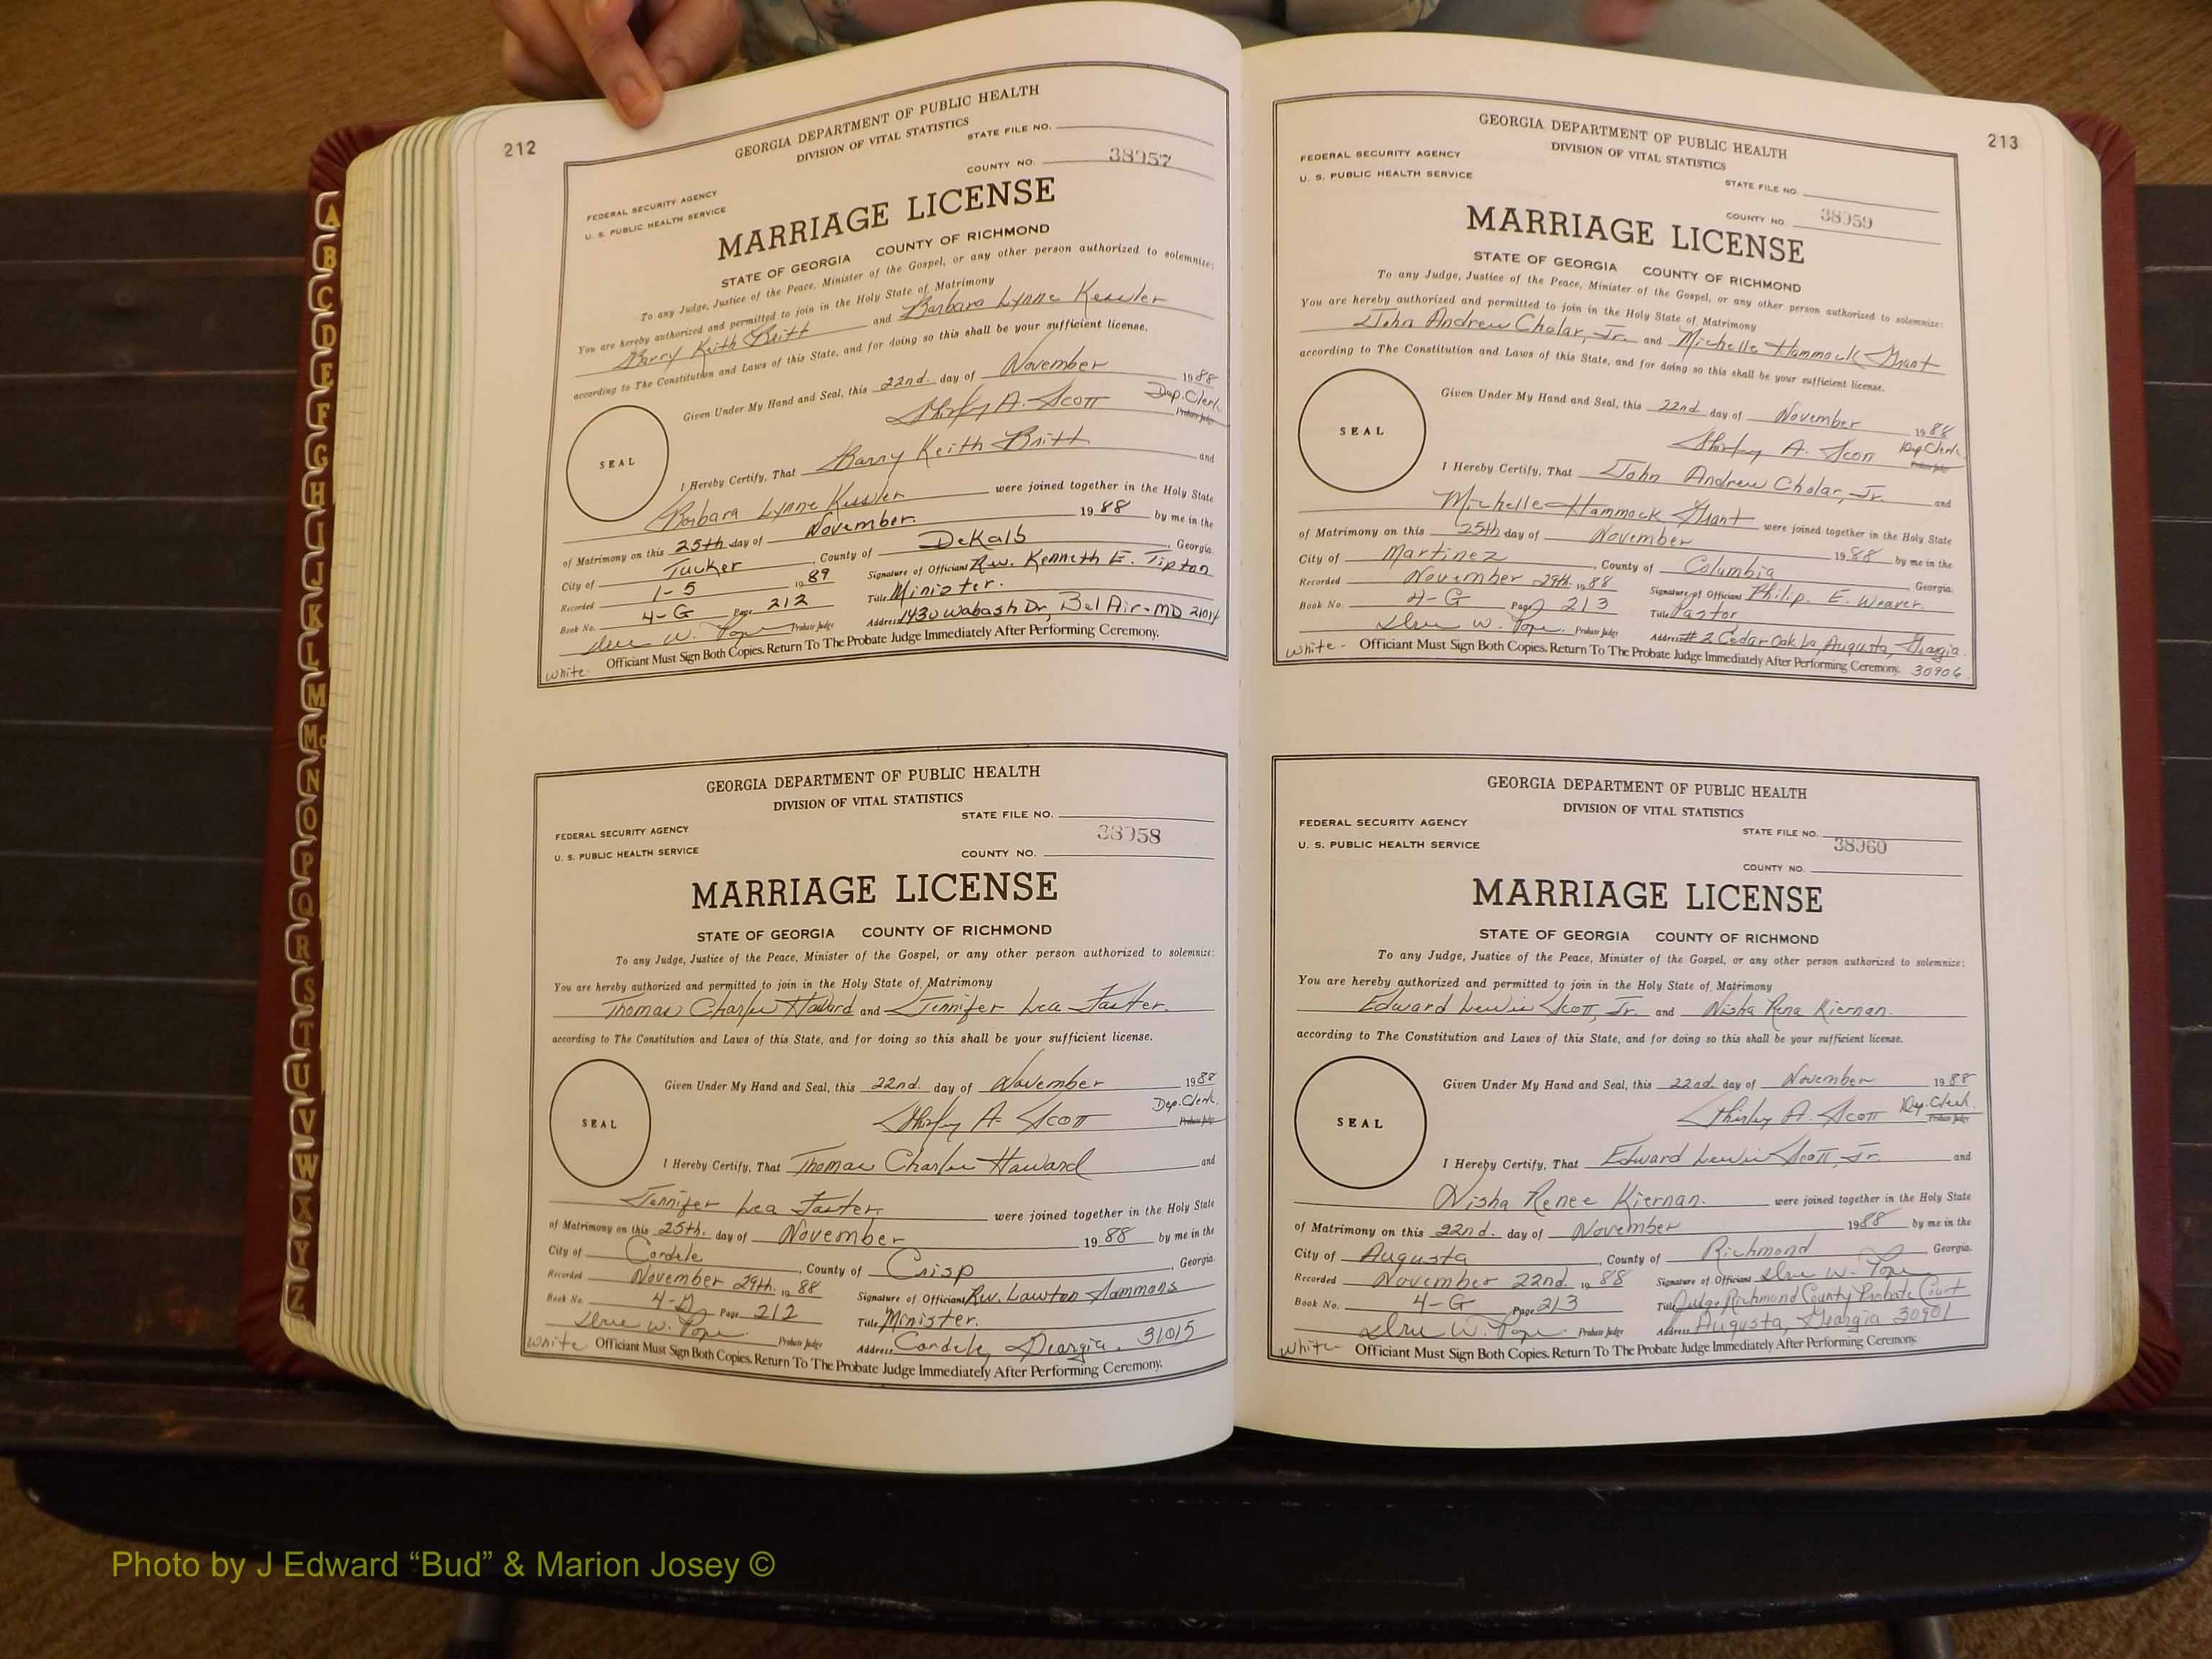 212
GEORGIA DEPARTMENT OF PUBLIC HEALTH
DIVISION OF VITAL STATISTICS
STATE FILE NO.
COUNTY NO. 38957
FEDERAL SECURITY AGENCY
U. S. PUBLIC HEALTH SERVICE
MARRIAGE LICENSE
STATE OF GEORGIA COUNTY OF RICHMOND
To any Judge, Justice of the Peace, Minister of the Gospel, or any other person authorized to solemnize:
You are hereby authorized and permitted to join in the Holy State of Matrimony
Barry Keith Britt and Barbara Lynne Kessler
according to The Constitution and Laws of this State, and for doing so this shall be your sufficient license.
Given Under My Hand and Seal, this 22nd. day of November 1988
Shirley A. Scott Dep. Clerk
Probate Judge
SEAL
I Hereby Certify, That Barry Keith Britt and
Barbara Lynne Kessler were joined together in the Holy State
of Matrimony on this 25th day of November. 1988 by me in the
City of Tucker, County of DeKalb, Georgia.
Recorded 1-5 1989 Signature of Official Rev. Kenneth E. Tipton
Book No. 4-G Page 212 Title Minister.
Probate Judge Address 1430 Wabash Dr, Bel Air-MD 21014
White- Officiant Must Sign Both Copies. Return To The Probate Judge Immediately After Performing Ceremony.
GEORGIA DEPARTMENT OF PUBLIC HEALTH
DIVISION OF VITAL STATISTICS
STATE FILE NO.
FEDERAL SECURITY AGENCY
38958
U. S. PUBLIC HEALTH SERVICE
COUNTY NO.
MARRIAGE LICENSE
STATE OF GEORGIA COUNTY OF RICHMOND
To any Judge, Justice of the Peace, Minister of the Gospel, or any other person authorized to solemnize:
You are hereby authorized and permitted to join in the Holy State of Matrimony
Thomas Charles Haward and Jennifer Lea Faster.
according to The Constitution and Laws of this State, and for doing so this shall be your sufficient license.
Given Under My Hand and Seal, this 22nd. day of November 1988
Shirley A. Scott Dep. Clerk.
Probate Judge
SEAL
I Hereby Certify, That Thomas Charles Haward and
Jennifer Lea Faster were joined together in the Holy State
of Matrimony on this 25th. day of November 1988 by me in the
City of Cordele, County of Crisp, Georgia.
Recorded November 29th. 1988 Signature of Official Rev. Lawton Sammons
Book No. 4-G Page 212 Title Minister.
Probate Judge Address Cordele, Georgia. 31015
White- Officiant Must Sign Both Copies. Return To The Probate Judge Immediately After Performing Ceremony.
213
GEORGIA DEPARTMENT OF PUBLIC HEALTH
DIVISION OF VITAL STATISTICS
FEDERAL SECURITY AGENCY
U. S. PUBLIC HEALTH SERVICE
STATE FILE NO.
COUNTY NO. 38959
MARRIAGE LICENSE
STATE OF GEORGIA COUNTY OF RICHMOND
To any Judge, Justice of the Peace, Minister of the Gospel, or any other person authorized to solemnize:
You are hereby authorized and permitted to join in the Holy State of Matrimony
John Andrew Cholar, Jr. and Michelle Hammock Grant
according to The Constitution and Laws of this State, and for doing so this shall be your sufficient license.
Given Under My Hand and Seal, this 22nd. day of November 1988
Shirley A. Scott Dep Clerk.
Probate Judge
SEAL
I Hereby Certify, That John Andrew Cholar, Jr. and
Michelle Hammock Grant were joined together in the Holy State
of Matrimony on this 25th day of November 1988 by me in the
City of Martinez, County of Columbia Georgia.
Recorded November 29th. 1988 Signature of Official Philip. E. Weaver.
Book No. 4-G Page 213 Title Pastor
Probate Judge Address # 2 Cedar Oak La, Augusta, Georgia.
30906
White- Officiant Must Sign Both Copies. Return To The Probate Judge Immediately After Performing Ceremony.
GEORGIA DEPARTMENT OF PUBLIC HEALTH
DIVISION OF VITAL STATISTICS
FEDERAL SECURITY AGENCY
STATE FILE NO.
U. S. PUBLIC HEALTH SERVICE
38960
COUNTY NO.
MARRIAGE LICENSE
STATE OF GEORGIA COUNTY OF RICHMOND
To any Judge, Justice of the Peace, Minister of the Gospel, or any other person authorized to solemnize:
You are hereby authorized and permitted to join in the Holy State of Matrimony
Edward Lewis Scott, Jr. and Nisha Rena Kiernan.
according to The Constitution and Laws of this State, and for doing so this shall be your sufficient license.
Given Under My Hand and Seal, this 22nd. day of November 1988
Shirley A. Scott Dep. Clerk.
Probate Judge
SEAL
I Hereby Certify, That Edward Lewis Scott, Jr. and
Nisha Renee Kiernan. were joined together in the Holy State
of Matrimony on this 22nd. day of November 1988 by me in the
City of Augusta, County of Richmond Georgia.
Recorded November 22nd. 1988 Signature of Official
Book No. 4-G Page 213 Title Judge Richmond County Probate Court
Probate Judge Address Augusta, Georgia 30901
White- Officiant Must Sign Both Copies. Return To The Probate Judge Immediately After Performing Ceremony.
A
B
C
D
E
F
G
H
I
J
K
L
M
Mc
N
O
P
Q
R
S
T
U
V
W
X
Y
Z
Photo by J Edward “Bud” & Marion Josey ©